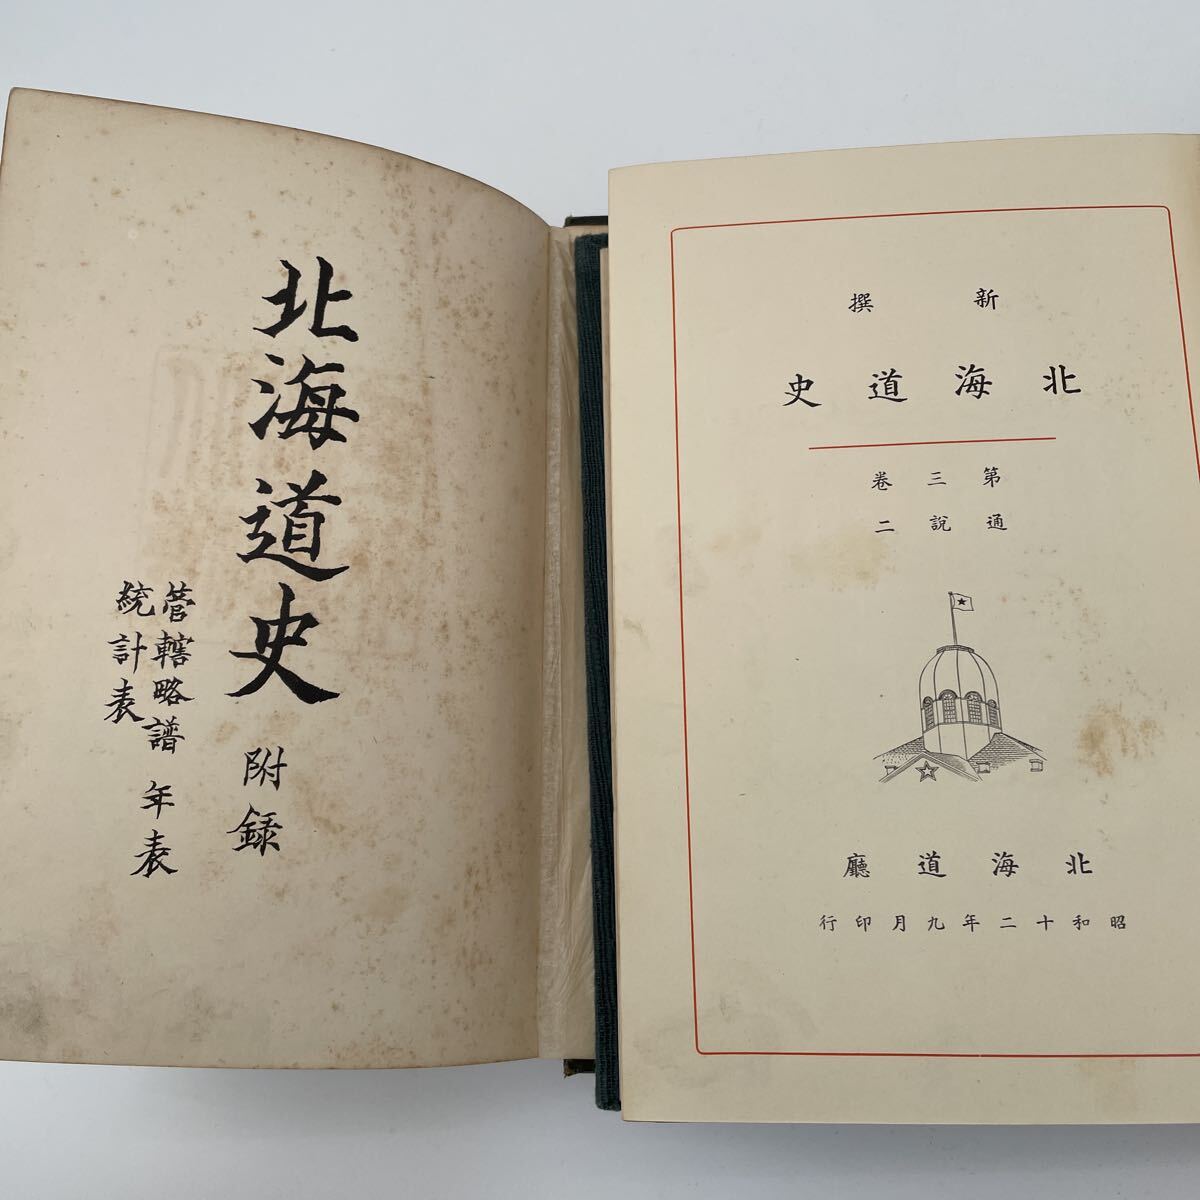 北海道史 附録
管轄略譜 年表
統計表
新撰
北海道史
第三卷
通說二
北海道廳
昭和十二年九月印行